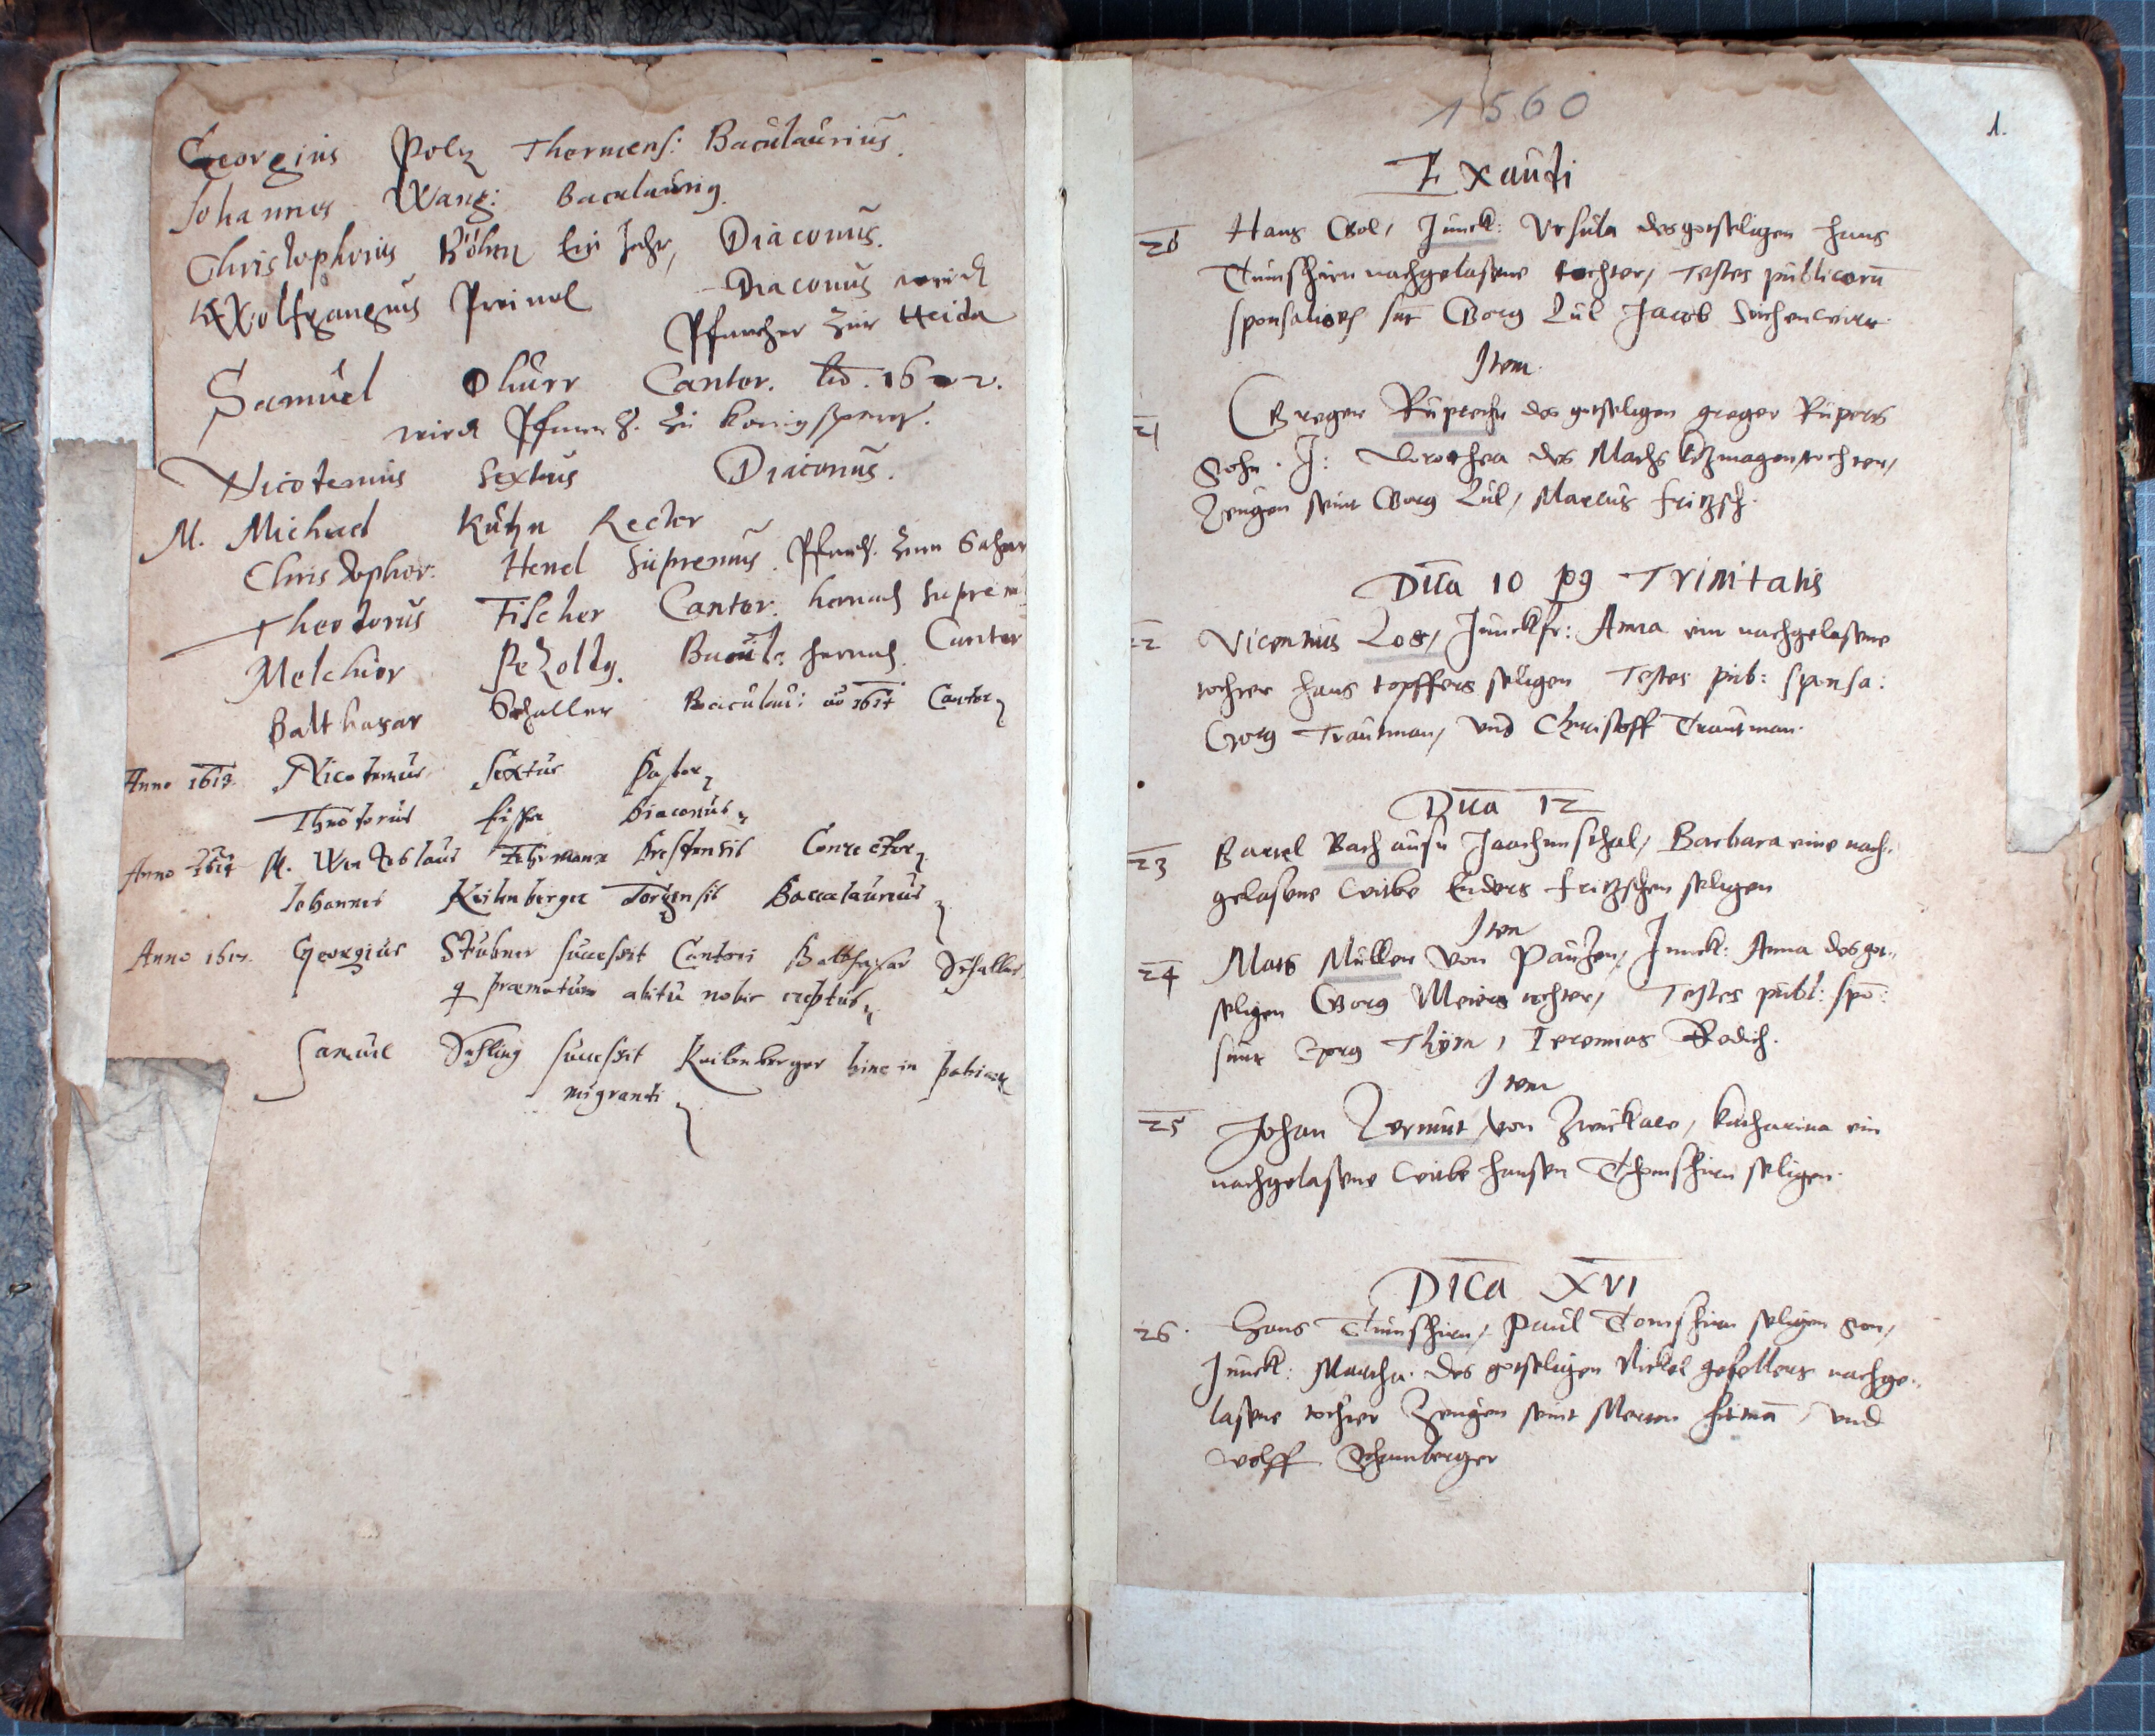 Georgius Polz Thermens: Baculaurius.
Johannes Wang: Baculaurig.
Christophorus Böhm Ein Jahr, Diaconus.
Wolfgangus Preinel Diaconus wirdt
Pfarrher zur Heida
Samuel Cantor. 1602.
wird Pfarrh. zu Konigsperg.
Nicodemus Sextus Diaconus.
M. Michael Kühn Rector
Christophor: Henel Supremus. Pfarrh. zum
Theodorus Fischer Cantor. hernach Suprem
Melchior Pezoldg. Bacul: hernach. Cantor
Balthasar Schaller Baculau: ao 1614 Cantor
Anno 1613. Nicodemus Sextus Pastor
Theodorus Diaconus
Anno 1614 M. Wenceslaus Conrector
Johannes Keilenberger Torgensis Baccalaureus
Anno 1615. Georgius Stubner successit Cantori Balthasar Schaller
q praematuro abitu nobis ereptus
Samuel successit Keilenberger hinc in patriam
migranti
1560
1.
Exaudi
20 Hans Junck: Ursula des gotseligen Hans
Tumshirn nachgelasene tochter, Testes publicorū
sponsalior sūt Georg Lül Jacob
Item
21 Greger Ruprecht des gotseligen greger Ruperts
Sohn. J: Dorothea des Machs tochter,
Zeugen seint Georg Lül, Marcus fritzsch.
Dīca 10 p9 Trinitatis
22 Vicentius Los, Junckfr: Anna ein nachgelasene
tochter Hans topffers seligen Testes pub: sponsa:
Georg Trautman, und Christoff Trautman.
Dīca 12
23 Bartel Bach ausn Joachimsthal, Barbara eine nach-
gelasene witbe Enders fritzschen seligen
Item
24 Mats Müller von Pautzen, Junck: Anna des got-
seligen Georg Meiers tochter, Testes publ: spō:
sunt Jorg Thÿrn, Ieremias Rodich.
Item
25 Johan Zermut, von Zwickaw, Katharina ein
nachgelasene witbe Hansen Thomshirn seligen.
Dīca XVI
26. Hans Tumshirn, Paul Tomshirn seligen son,
Junck: Martha. des gotseligen Nickel gefellers nachge-
lasene tochter Zeugen seint Merten und
Wolff Schamberger